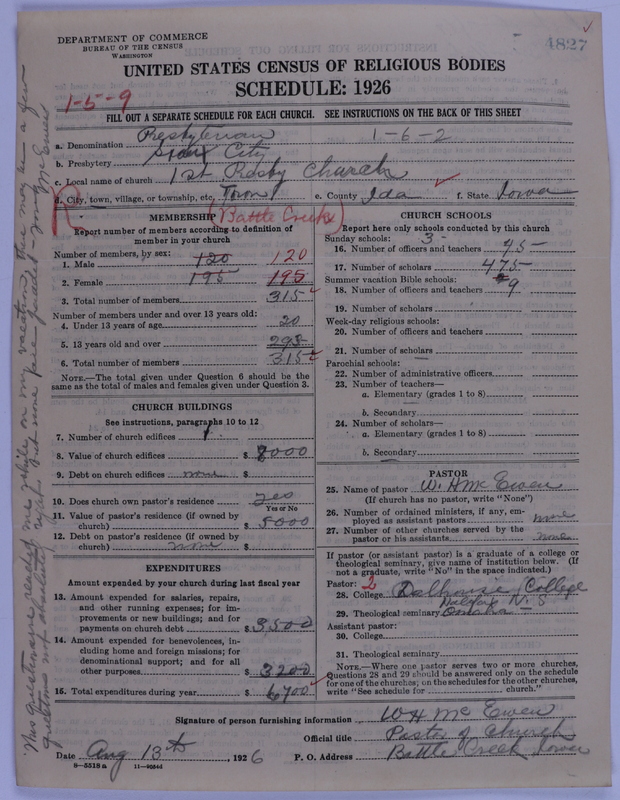 DEPARTMENT OF COMMERCE
BUREAU OF THE CENSUS
WASHINGTON
4827
UNITED STATES CENSUS OF RELIGIOUS BODIES
SCHEDULE: 1926
1-5-9
FILL OUT A SEPARATE SCHEDULE FOR EACH CHURCH. SEE INSTRUCTIONS ON THE BACK OF THIS SHEET
a. Denomination Presbyterian 1-6-2
b. Presbytery Sioux City
c. Local name of church 1st Presby Church
d. City, town, village, or township, etc. Town e. County Ida f. State Iowa
(Battle Creek)
MEMBERSHIP
Report number of members according to definition of member in your church
Number of members, by sex:
1. Male 120 120
2. Female 195 195
3. Total number of members 315
Number of members under and over 13 years old:
4. Under 13 years of age 20
5. 13 years old and over 295
6. Total number of members 315
NOTE.—The total given under Question 6 should be the same as the total of males and females given under Question 3.
CHURCH BUILDINGS
See instructions, paragraphs 10 to 12
7. Number of church edifices 1
8. Value of church edifices $ 8000
9. Debt on church edifices none $
10. Does church own pastor's residence yes
Yes or No
11. Value of pastor's residence (if owned by church) $ 5000
12. Debt on pastor's residence (if owned by church) none $
EXPENDITURES
Amount expended by your church during last fiscal year
13. Amount expended for salaries, repairs, and other running expenses; for improvements or new buildings; and for payments on church debt $ 3500
14. Amount expended for benevolences, including home and foreign missions; for denominational support; and for all other purposes $ 3200
15. Total expenditures during year $ 6700
CHURCH SCHOOLS
Report here only schools conducted by this church
Sunday schools: 3
16. Number of officers and teachers 45
17. Number of scholars 475
Summer vacation Bible schools:
18. Number of officers and teachers 9
19. Number of scholars
Week-day religious schools:
20. Number of officers and teachers
21. Number of scholars
Parochial schools:
22. Number of administrative officers
23. Number of teachers—
a. Elementary (grades 1 to 8)
b. Secondary
24. Number of scholars—
a. Elementary (grades 1 to 8)
b. Secondary
PASTOR
25. Name of pastor W. H McEwen
(If church has no pastor, write "None")
26. Number of ordained ministers, if any, employed as assistant pastors none
27. Number of other churches served by the pastor or his assistants none
If pastor (or assistant pastor) is a graduate of a college or theological seminary, give name of institution below. (If not a graduate, write "No" in the space indicated.)
Pastor: 2
28. College Dalhousie College
Halifax N. S
29. Theological seminary Omaha
Assistant pastor:
30. College
31. Theological seminary
NOTE.—Where one pastor serves two or more churches, Questions 28 and 29 should be answered only on the schedule for one of the churches; on the schedules for the other churches, write "See schedule for church."
Signature of person furnishing information W H Mc Ewen
Official title Pastor of Church
Date Aug 13th, 1926 P. O. Address Battle Creek Iowa
8—5518 a